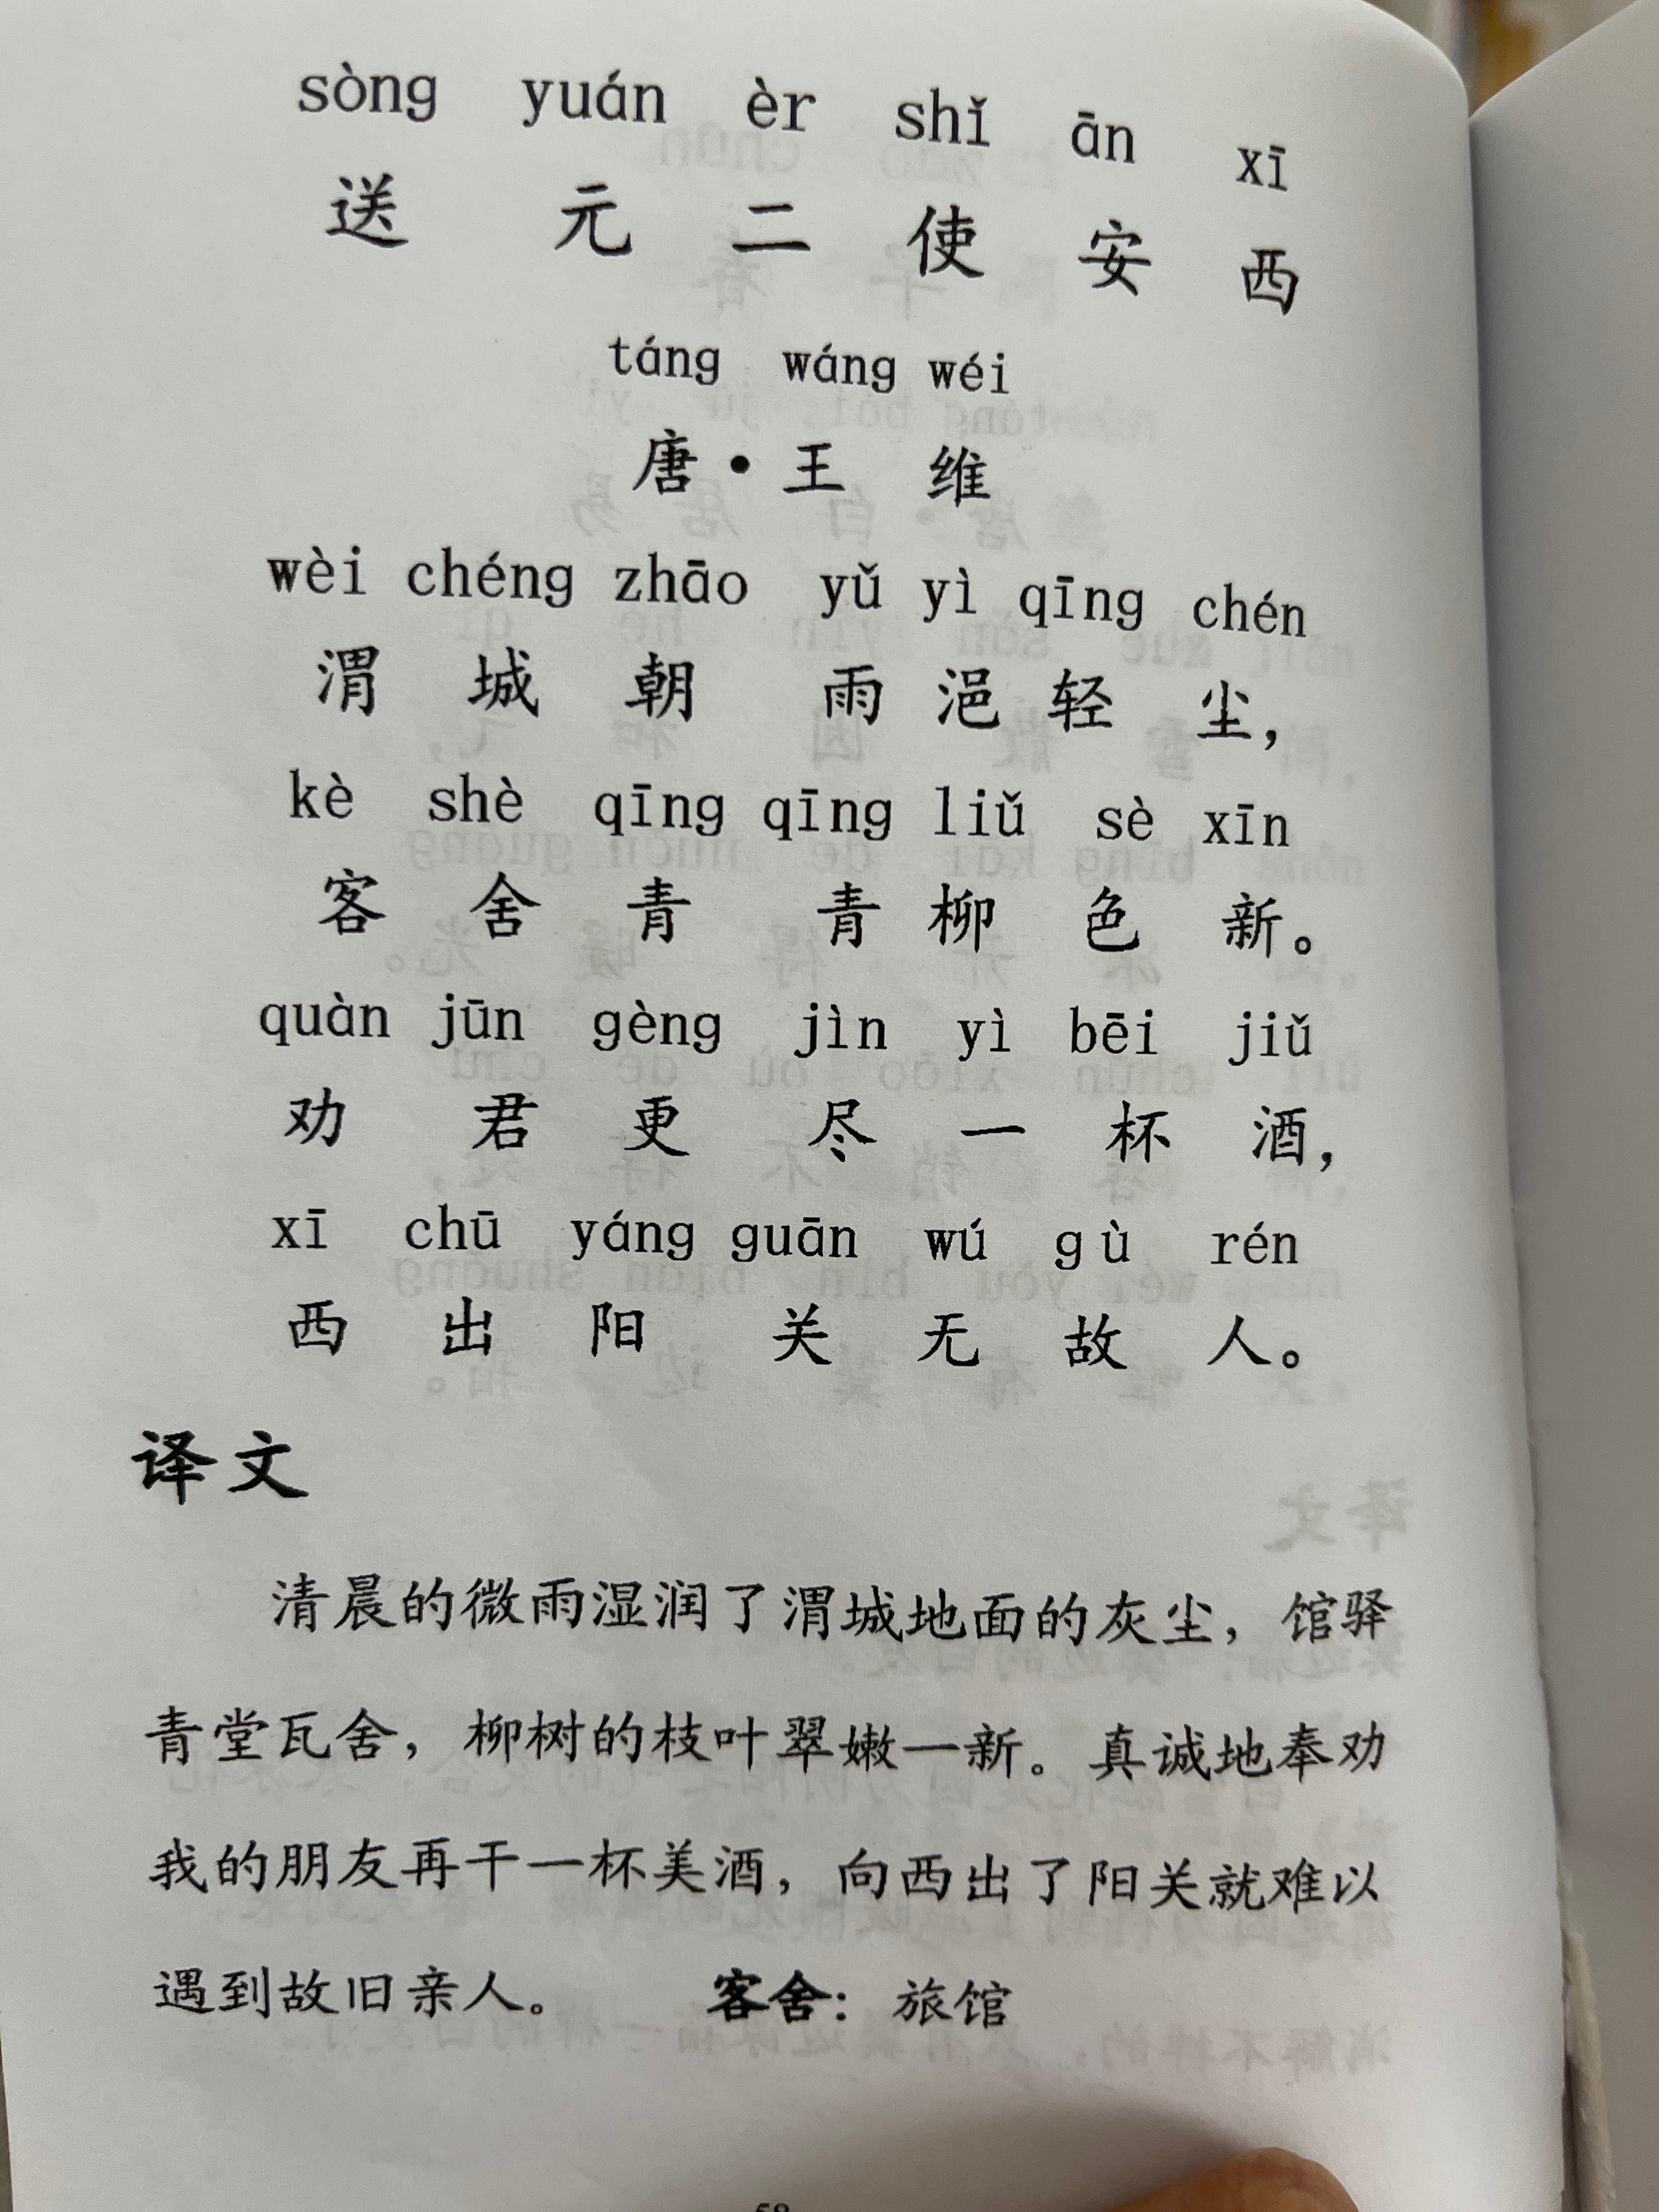 sòng yuán èr shǐ ān xī
送元二使安西
táng wáng wéi
唐·王维
wèi chéng zhāo yǔ yì qīng chén
渭城朝雨浥轻尘，
kè shè qīng qīng liǔ sè xīn
客舍青青柳色新。
quàn jūn gèng jìn yì bēi jiǔ
劝君更尽一杯酒，
xī chū yáng guān wú gù rén
西出阳关无故人。
译文
清晨的微雨湿润了渭城地面的灰尘，馆驿
青堂瓦舍，柳树的枝叶翠嫩一新。真诚地奉劝
我的朋友再干一杯美酒，向西出了阳关就难以
遇到故旧亲人。 客舍：旅馆